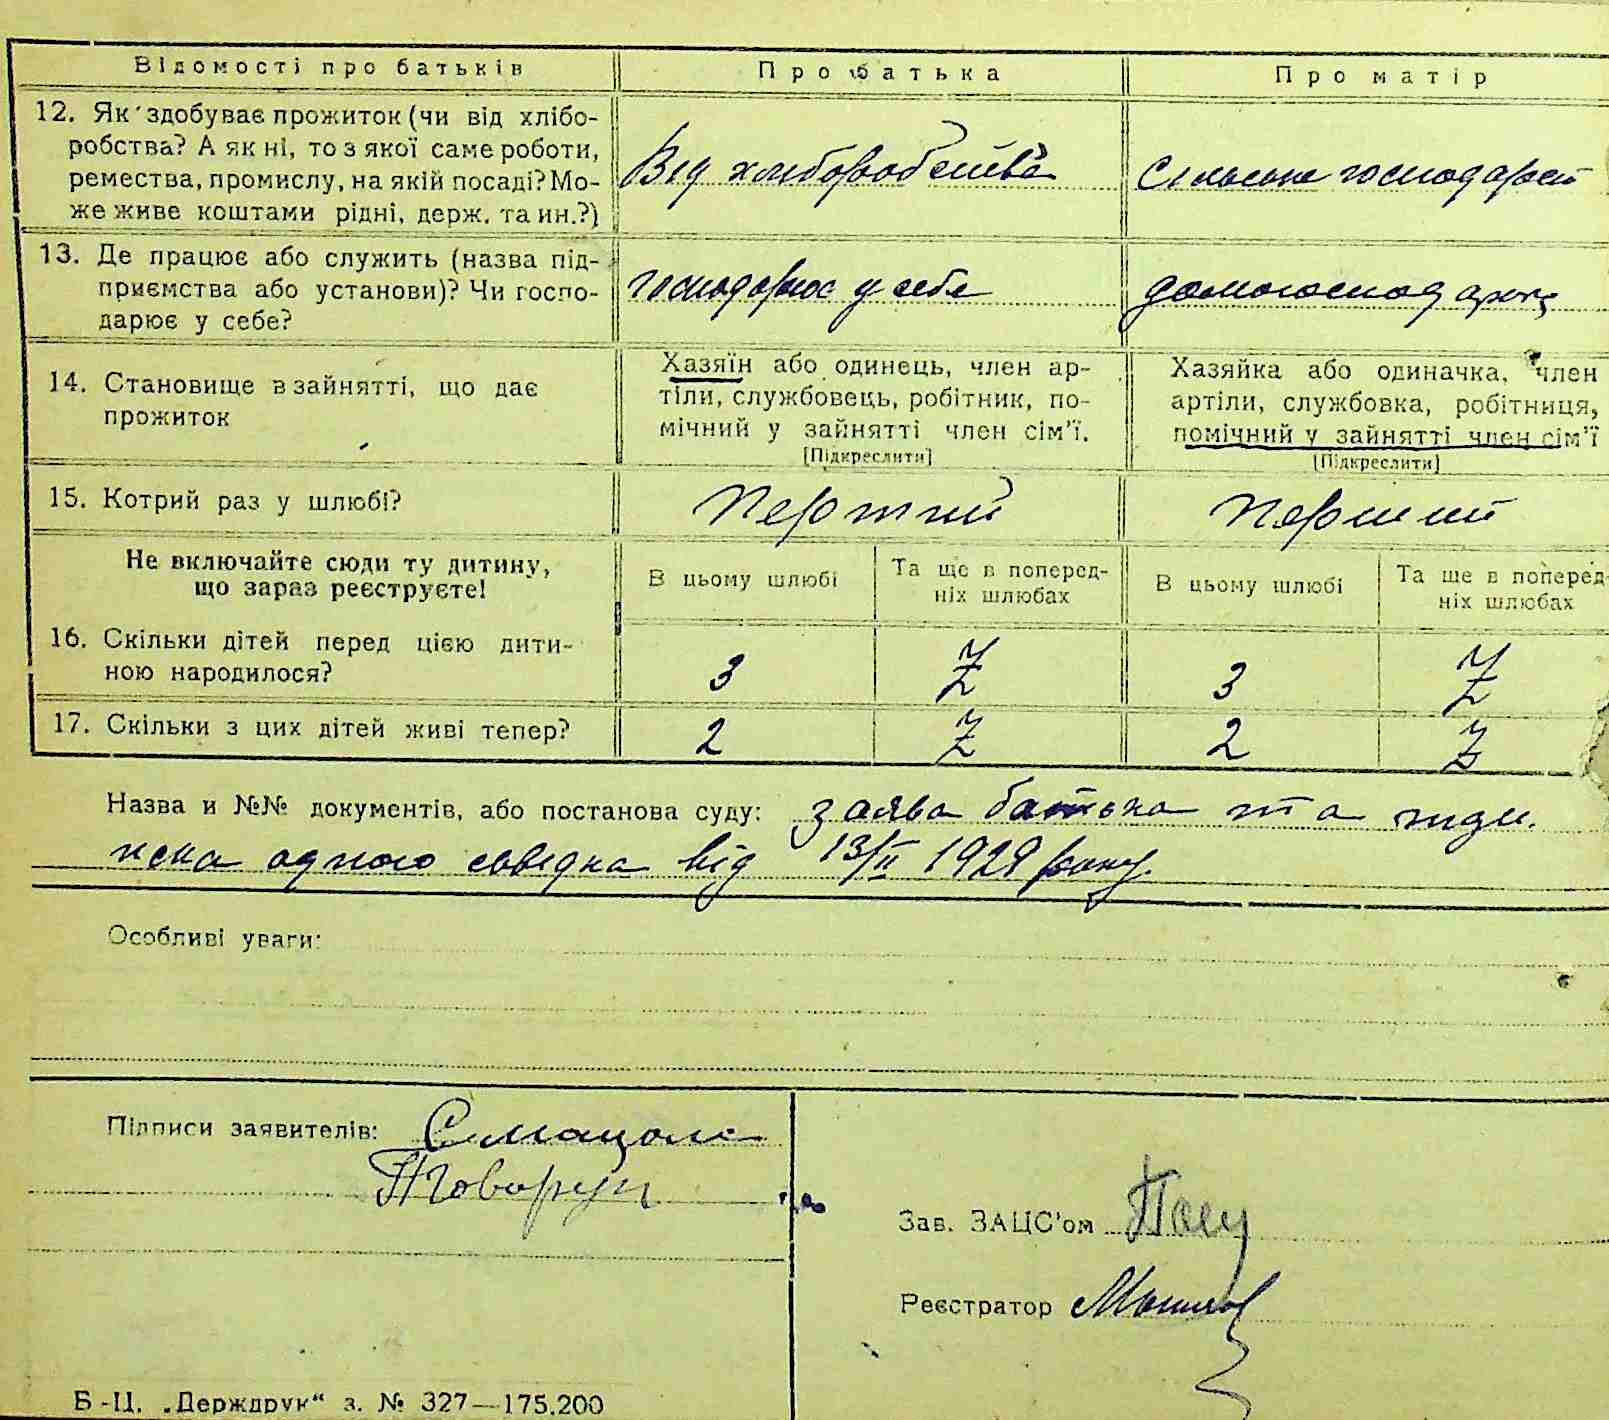 Відомості про батьків
Про батька
Про матір
12. Як здобуває прожиток (чи від хлібо-
робства? А як ні, то з якої саме роботи,
ремества, промислу, на якій посаді? Мо-
же живе коштами рідні, держ. та ин.?)
Від хліборобства
Сільське господарст
13. Де працює або служить (назва під-
приємства або установи)? Чи госпо-
дарює у себе?
господарює у себе
домогосподарка
14. Становище в зайнятті, що дає
прожиток
Хазяїн або одинець, член ар-
тіли, службовець, робітник, по-
мічний у зайнятті член сім'ї.
[Підкреслити]
Хазяйка або одиначка, член
артіли, службовка, робітниця,
помічний у зайнятті член сім'ї
[Підкреслити]
15. Котрий раз у шлюбі?
Перший
Перший
Не включайте сюди ту дитину,
що зараз реєструєте!
В цьому шлюбі
Та ще в поперед-
ніх шлюбах
В цьому шлюбі
Та ще в поперед-
ніх шлюбах
16. Скільки дітей перед цією дити-
ною народилося?
3
Z
3
Z
17. Скільки з цих дітей живі тепер?
2
Z
2
Z
Назва и №№ документів, або постанова суду: заява батька та підпи
иска одного свідка від 13/II 1929 року.
Особливі уваги:
Підписи заявителів:
П Говорун
Зав. ЗАЦС'ом
Реєстратор
Б-Ц. „Держдрук“ з. № 327—175.200